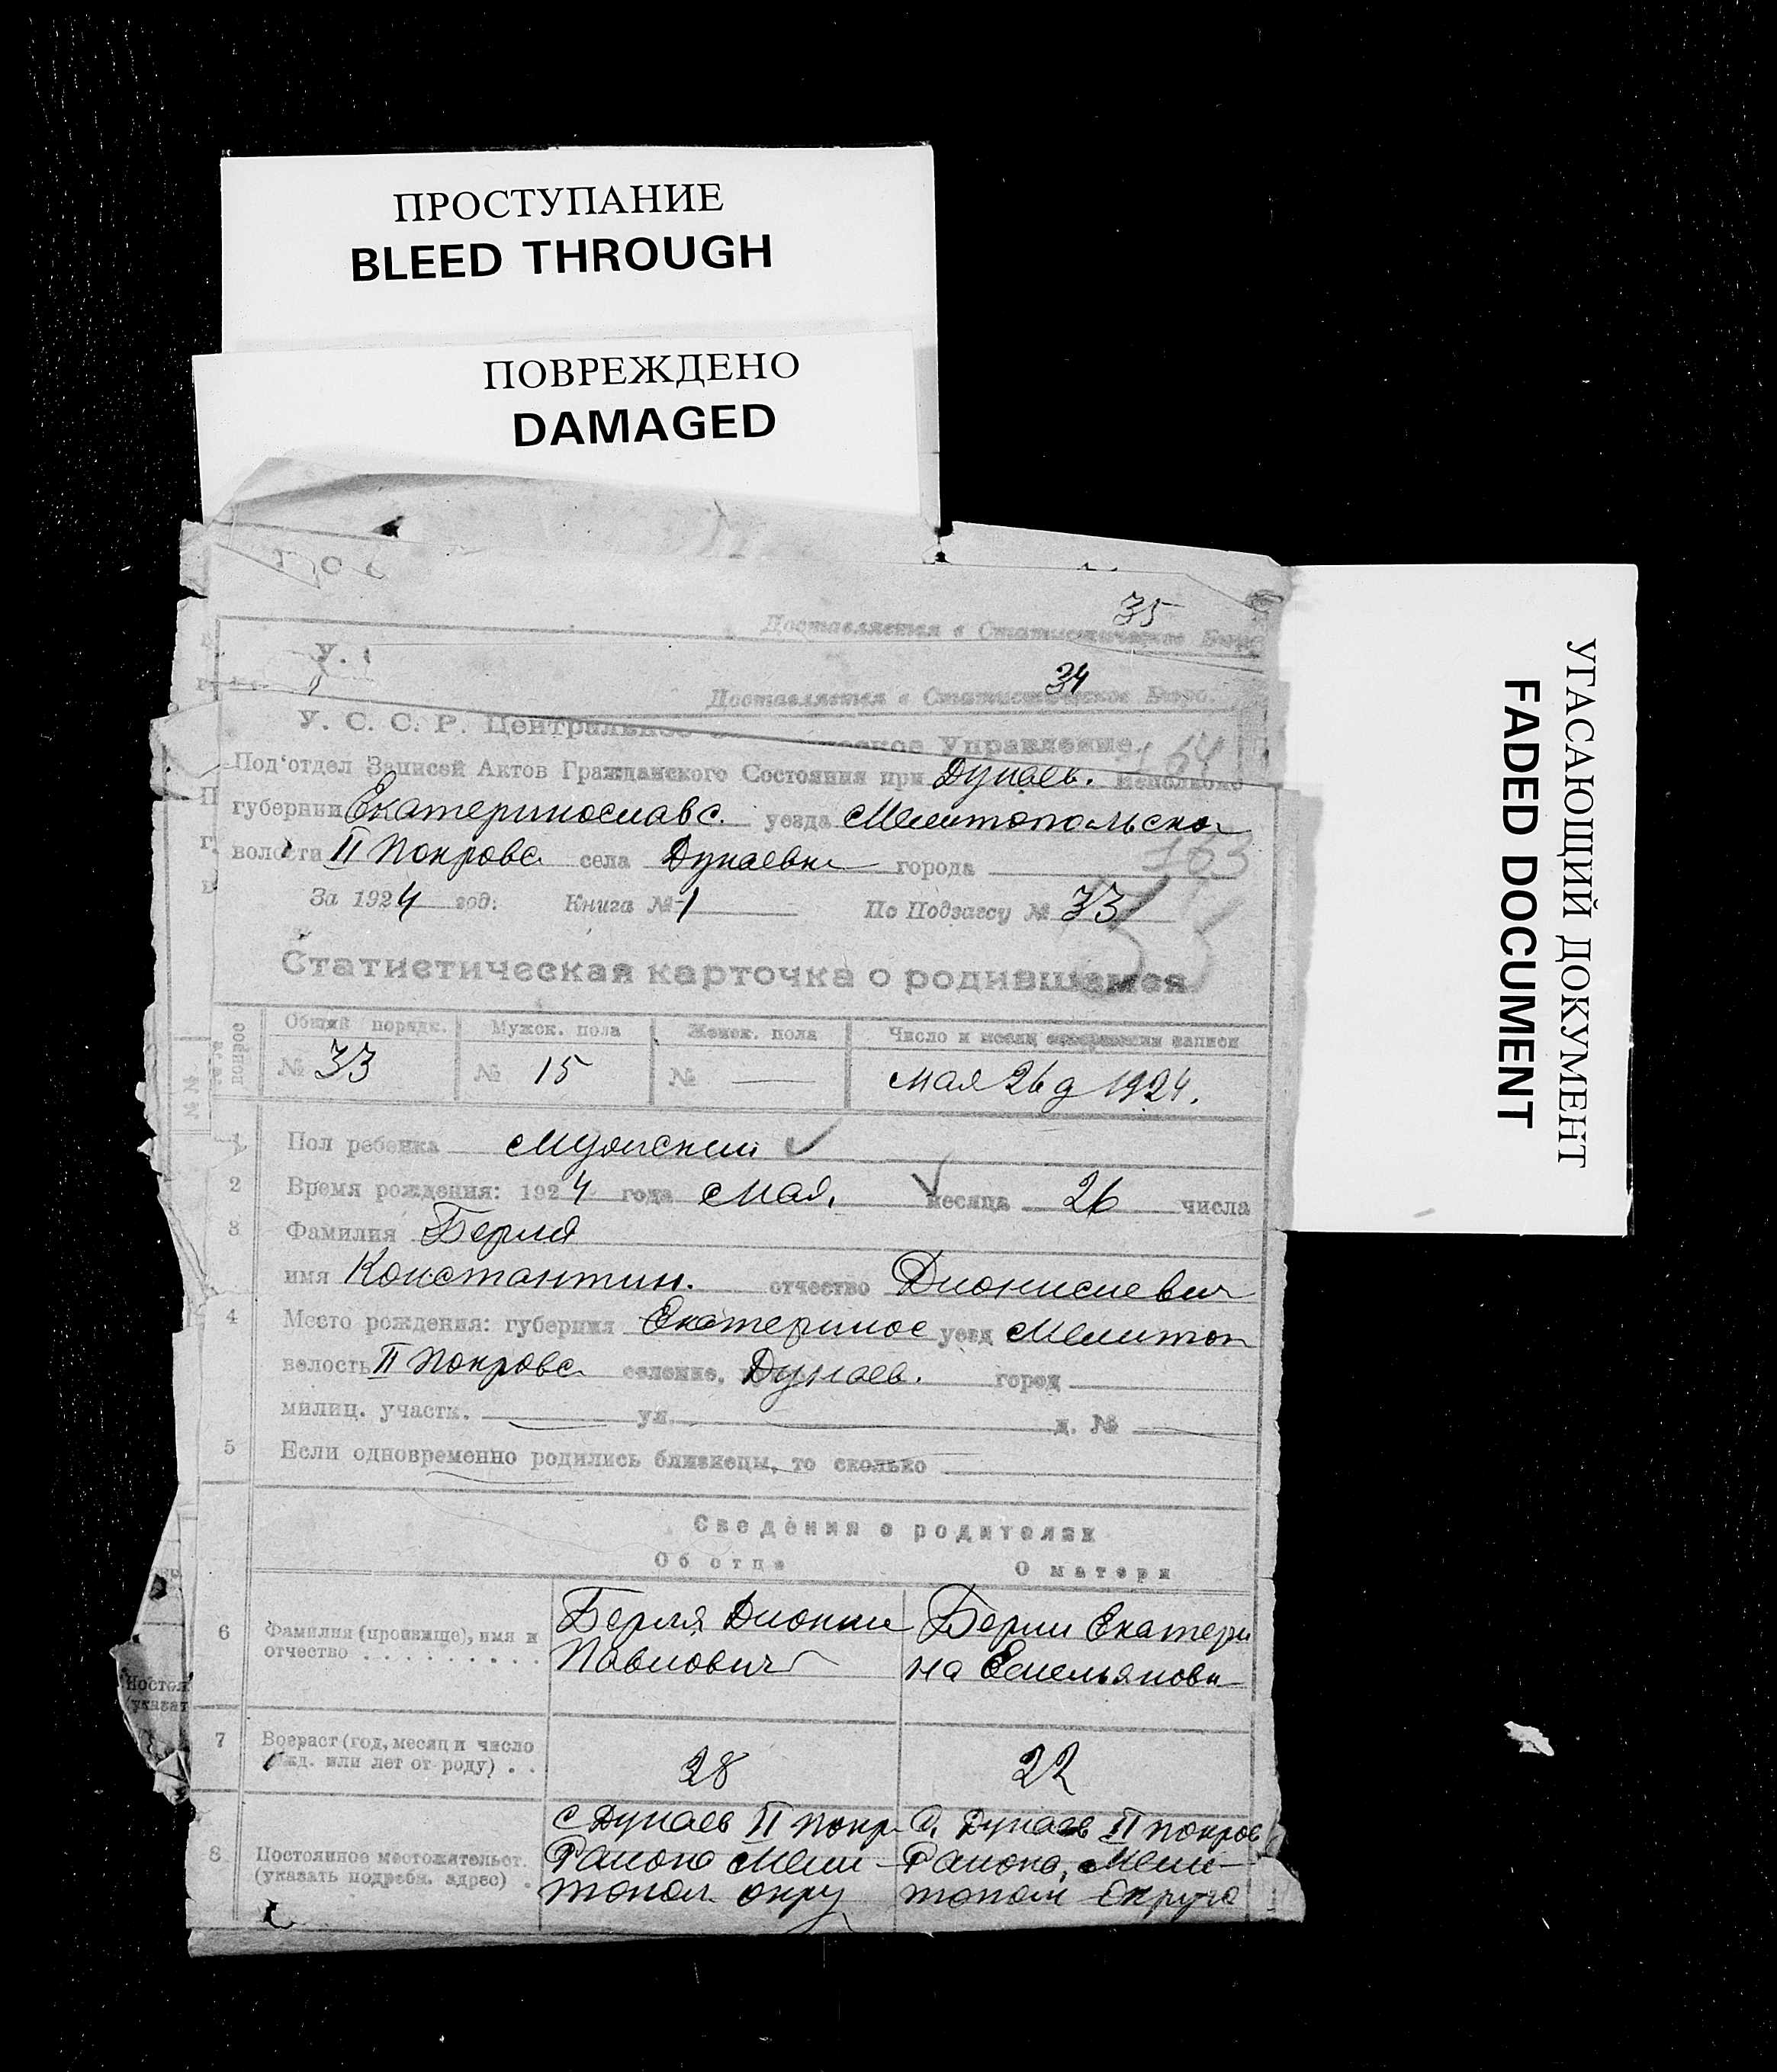 ПРОСТУПАНИЕ
BLEED THROUGH
ПОВРЕЖДЕНО
DAMAGED
УГАСАЮЩИЙ ДОКУМЕНТ
FADED DOCUMENT
35
Доставляется в Статистическое Бюро
У.
34
Доставляется в Статистическое Бюро.
У. С. С. Р. Центральное Управление
164
Под'отдел Записей Актов Гражданского Состояния при Дунаев. Исполкоме
губернии Екатеринославс. уезда Мелитопольско
волости II Покровс села Дунаевки города
163
За 1924 год: Книга № 1 По Подзагсу № 33
Статистическая карточка о родившемся
Общий порядк. Мужск. пола Женск. пола Число и месяц совершения записи
№ 33 № 15 № — мая 26 д 1924.
1 Пол ребенка Мужеский
2 Время рождения: 1924 года Мая. месяца 26 числа
3 Фамилия Берля
имя Константин. отчество Дионисиевич
4 Место рождения: губерния Екатеринос уезд Мелитоп
волость II Покровс селение, Дунаев. город
милиц. участк. ул. д. №
5 Если одновременно родились близнецы, то сколько
Сведения о родителях
Об отце О матери
6 Фамилия (прозвище), имя и отчество Берля Дионии Павлович
Берли Екатери на Емельяновн
7 Возраст (год, месяц и число рожд. или лет от роду) . . 28 22
8 Постоянное местожительст. (указать подробн. адрес) .
с Дунаев II покр Района Мели- топол округ
с. Дунаев II покров Района, Мели- топол Округа